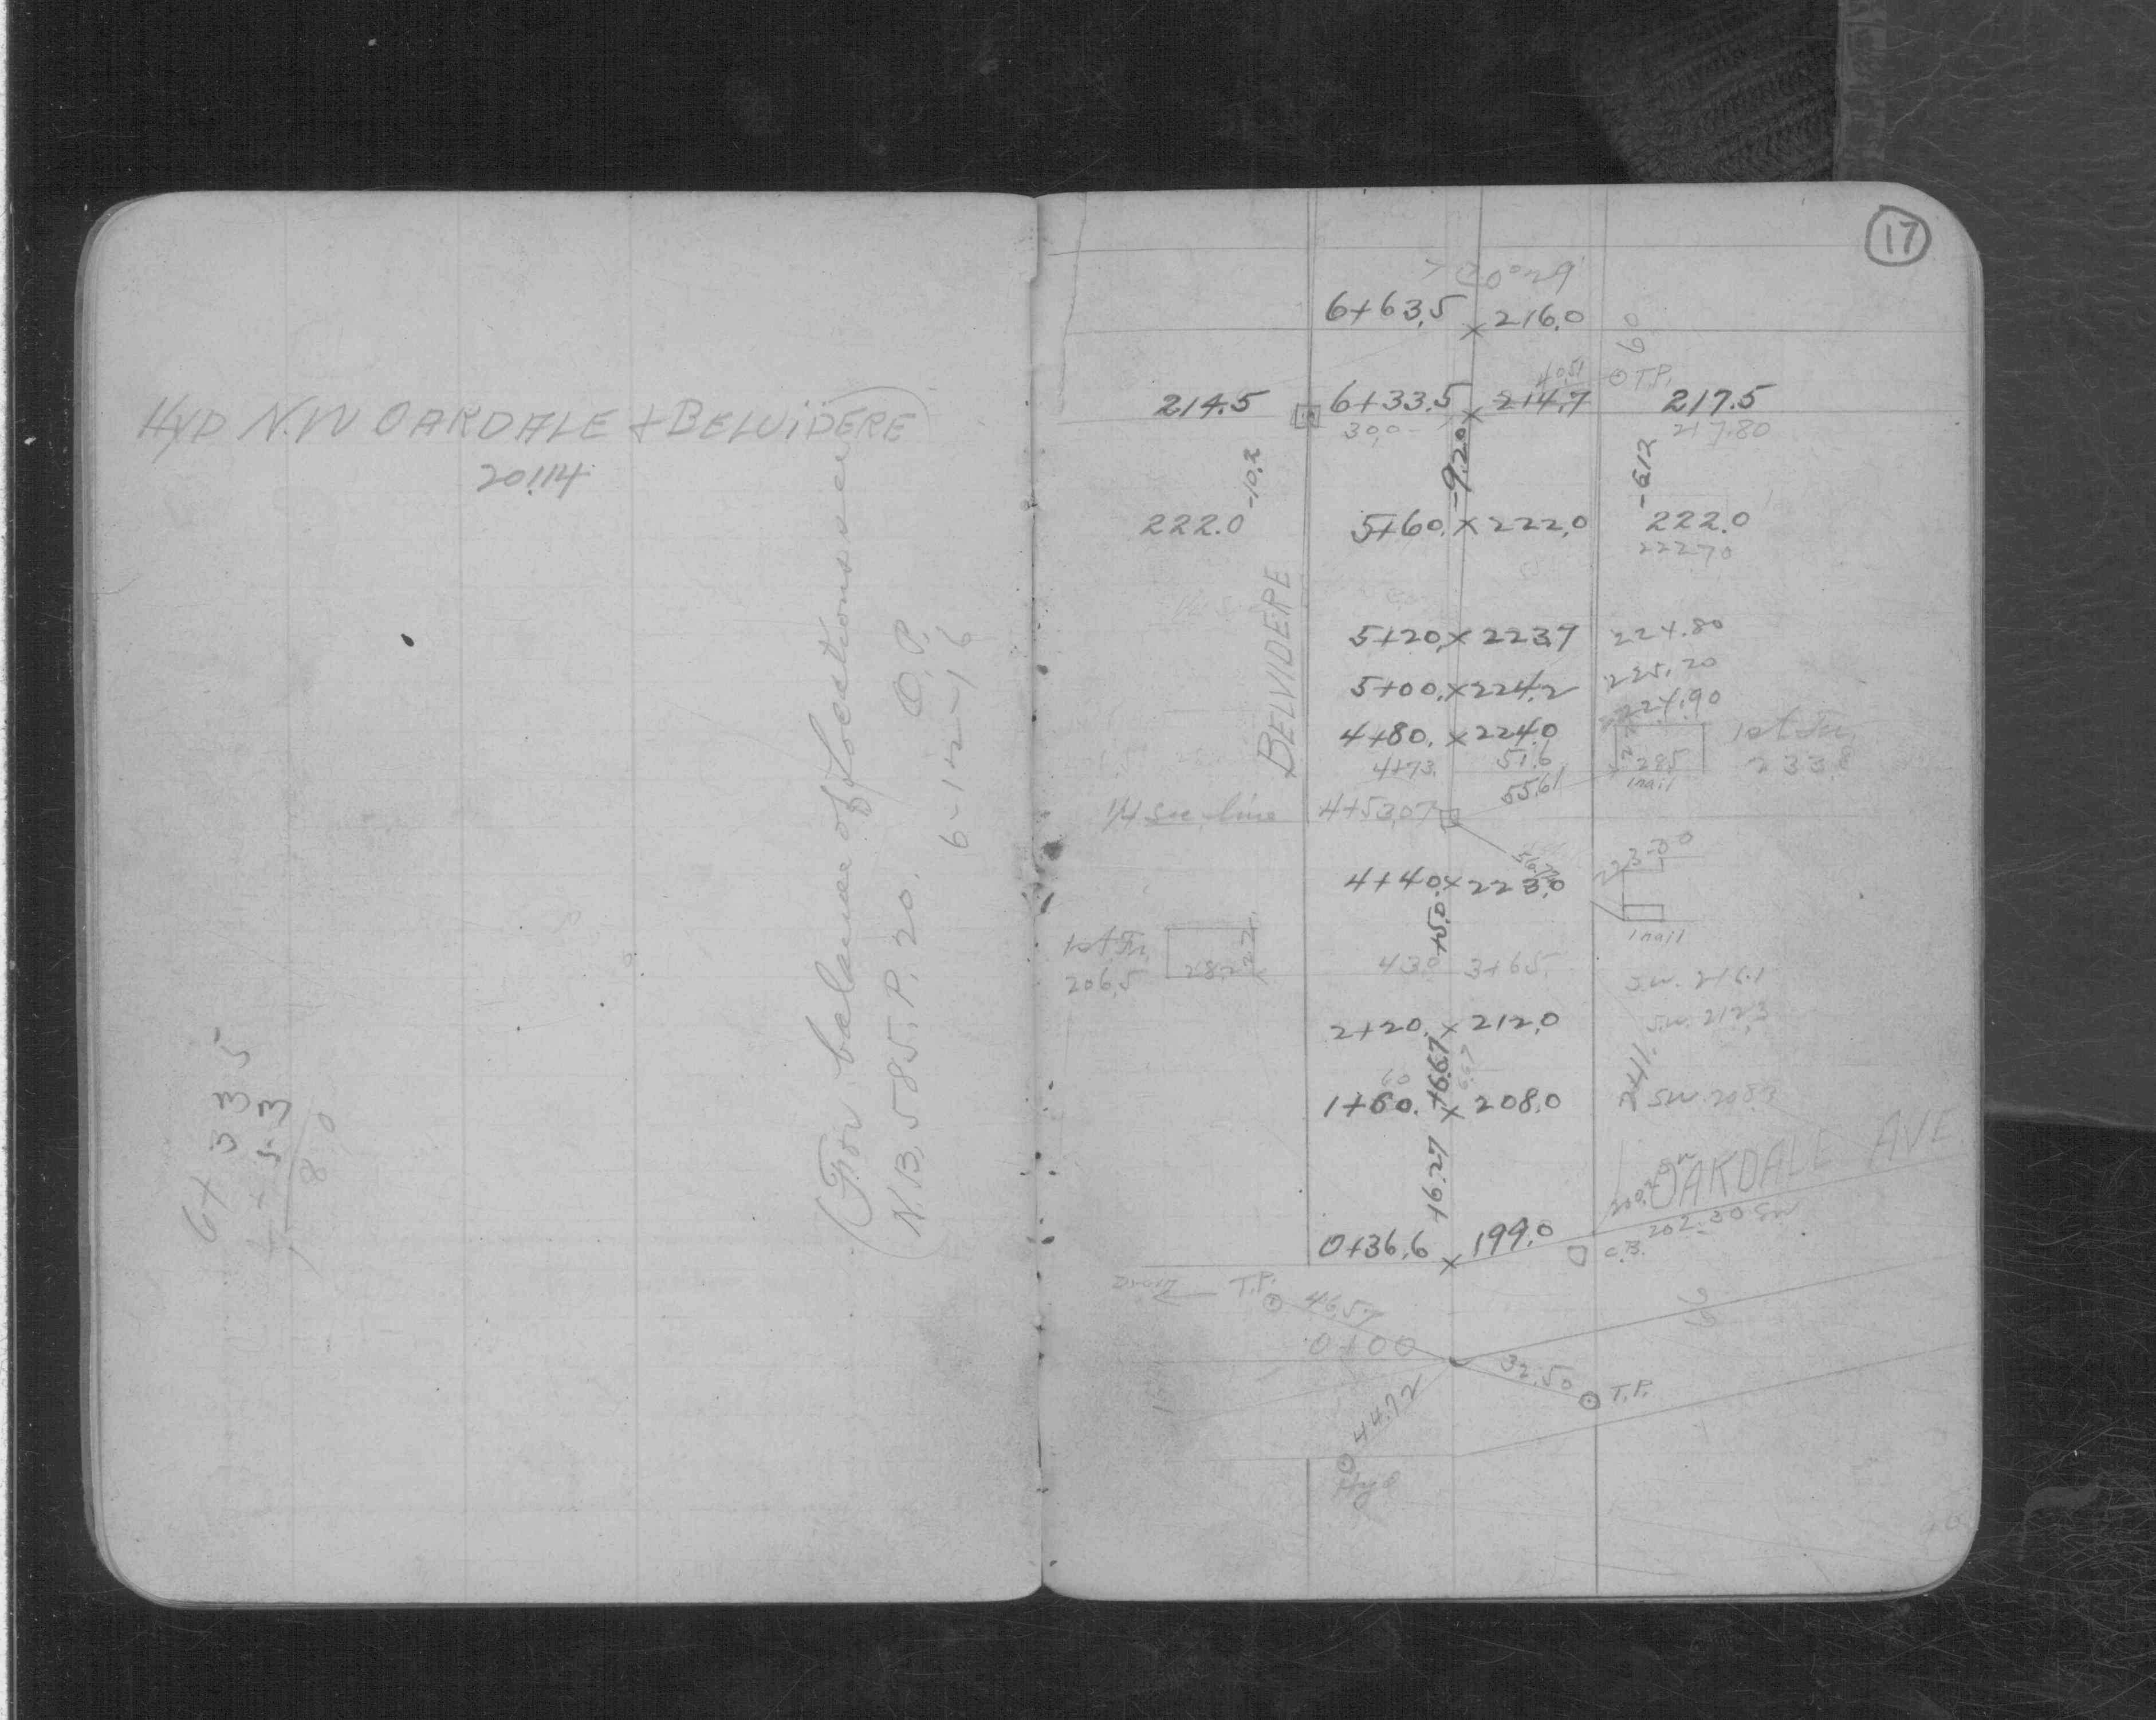 HYD N.W OAKDALE + BELVIDERE
201.14
(For balance of locations see
N.B. 585. P. 20. O.P.
6-12-16
6+ 33.5
17
6+63.5 x 216.0
60
40.51
T.P.
214.5 6+33.5 x 214.7 217.5
30.0 217.80
-10.2 -9.20 -6.12
222.0 5+60. x 222.0 222.0
222.70
BELVIDERE
5+20. x 223.7 224.80
5+00. x 224.2 225.20
4+80. x 224.0 224.90
4+73. 51.6 28.5 1st Fu.
55.61 1nail 233.8
1/4 Sec. line 4+53.07
4+40. x 223.0 223.00
+5.0
1nail
1st Fu. 28.2 22 43.0 3+65. S.W. 216.1
206.5
S.W. 212.3
2+20. x 212.0
+6.67 6.67
60
1+60. x 208.0 S.W. 208.3
+16.27
OAKDALE AVE
0+36.6 x 199.0 202.30 SW
C.B.
Drain T.P. 46.57
0+00
66
32.50 T.P.
44.72
Hyd